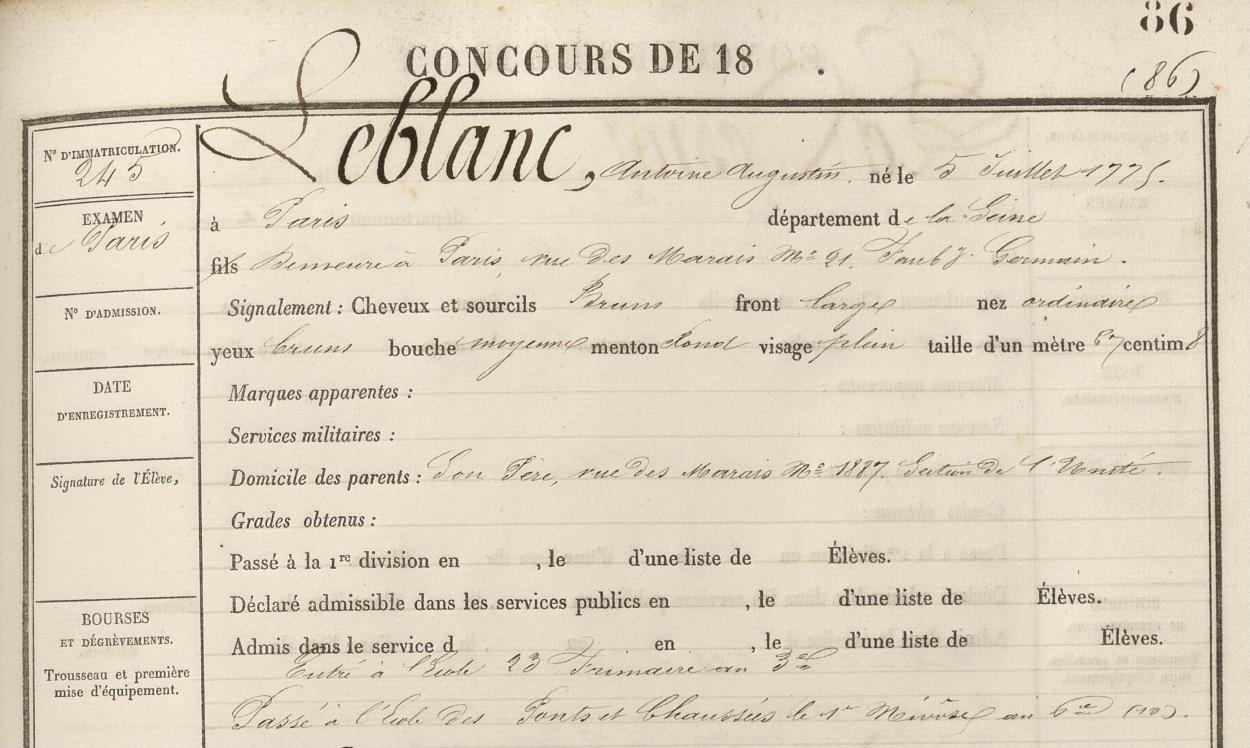 86
CONCOURS DE 18 .
(86)
Leblanc, Antoine Augustin. né le 5 Juillet 1775.
à Paris département de la Seine
fils Demeure à Paris, rue des Marais No 21. Faubg. Germain.
Signalement : Cheveux et sourcils Bruns front large nez ordinaire
yeux bruns bouche moyenne menton rond visage plein taille d'un mètre 67 centim. 8
Marques apparentes :
Services militaires :
Domicile des parents : Son Père, rue des Marais No 1887. Section de l'Unité.
Grades obtenus :
Passé à la 1re division en , le d'une liste de Élèves.
Déclaré admissible dans les services publics en , le d'une liste de Élèves.
Admis dans le service d en , le d'une liste de Élèves.
Entré à l'Ecole 23 Frimaire an 3e
Passé à l'Ecole des Ponts et Chaussées le 1er Nivôse an 6e
No D'IMMATRICULATION.
245
EXAMEN
de Paris
No D'ADMISSION.
DATE
D'ENREGISTREMENT.
Signature de l'Élève,
BOURSES
ET DÉGRÈVEMENTS.
Trousseau et première
mise d'équipement.